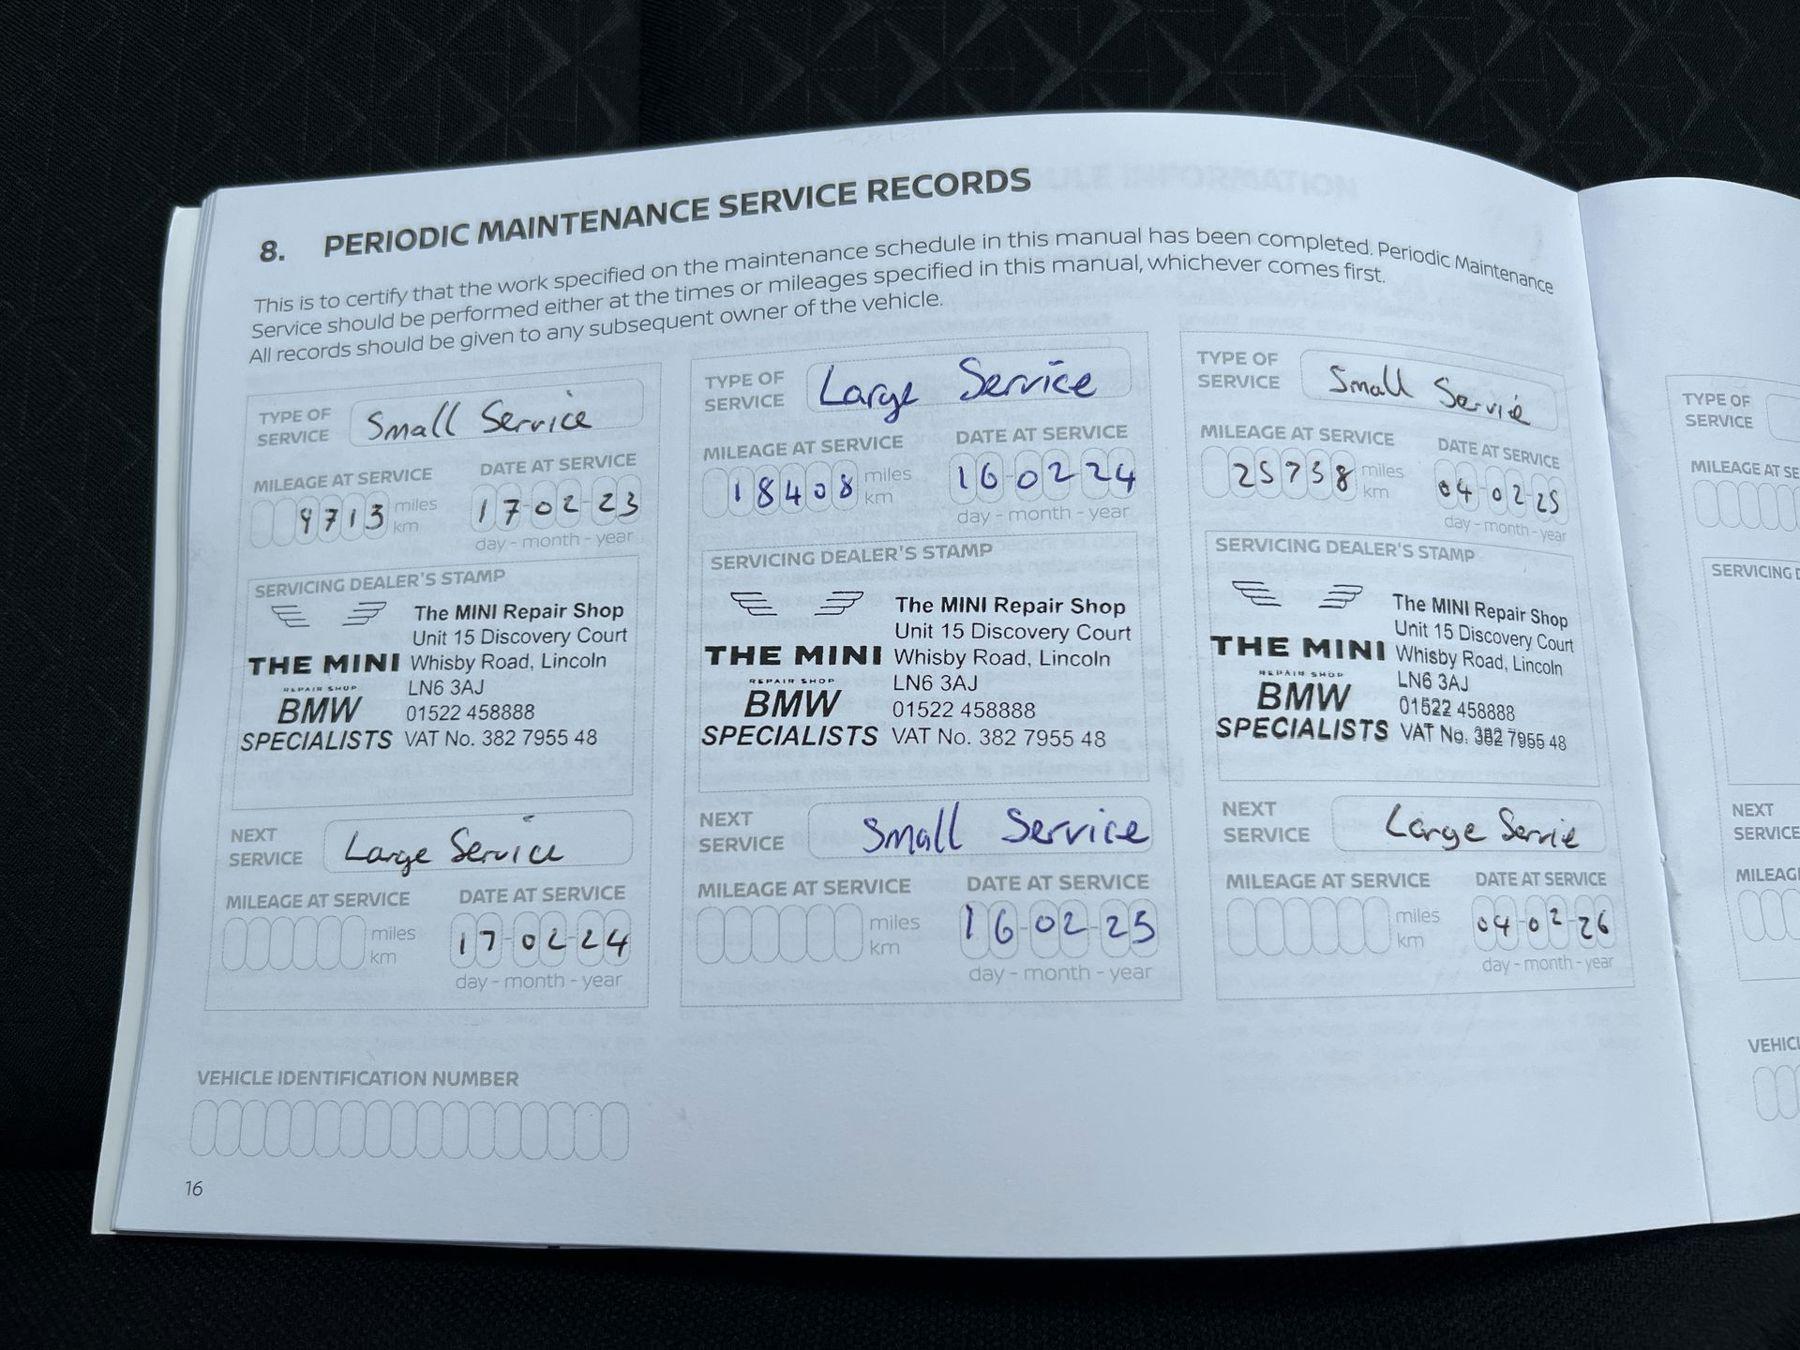 8. PERIODIC MAINTENANCE SERVICE RECORDS
This is to certify that the work specified on the maintenance schedule in this manual has been completed. Periodic Maintenance
Service should be performed either at the times or mileages specified in this manual, whichever comes first.
All records should be given to any subsequent owner of the vehicle.
TYPE OF
SERVICE
Small Service
MILEAGE AT SERVICE
DATE AT SERVICE
9713
miles
km
17-02-23
day - month - year
SERVICING DEALER'S STAMP
THE MINI
REPAIR SHOP
BMW
SPECIALISTS
The MINI Repair Shop
Unit 15 Discovery Court
Whisby Road, Lincoln
LN6 3AJ
01522 458888
VAT No. 382 7955 48
NEXT
SERVICE
Large Service
MILEAGE AT SERVICE
DATE AT SERVICE
miles
km
17-02-24
day - month - year
TYPE OF
SERVICE
Large Service
MILEAGE AT SERVICE
DATE AT SERVICE
18408
miles
km
16-02-24
day - month - year
SERVICING DEALER'S STAMP
THE MINI
REPAIR SHOP
BMW
SPECIALISTS
The MINI Repair Shop
Unit 15 Discovery Court
Whisby Road, Lincoln
LN6 3AJ
01522 458888
VAT No. 382 7955 48
NEXT
SERVICE
Small Service
MILEAGE AT SERVICE
DATE AT SERVICE
miles
km
16-02-25
day - month - year
TYPE OF
SERVICE
Small Servie
MILEAGE AT SERVICE
DATE AT SERVICE
25738
miles
km
04-02-25
day - month - year
SERVICING DEALER'S STAMP
THE MINI
REPAIR SHOP
BMW
SPECIALISTS
The MINI Repair Shop
Unit 15 Discovery Court
Whisby Road, Lincoln
LN6 3AJ
01522 458888
VAT No. 382 7955 48
NEXT
SERVICE
Large Servie
MILEAGE AT SERVICE
DATE AT SERVICE
miles
km
04-02-26
day - month - year
VEHICLE IDENTIFICATION NUMBER
16
TYPE OF
SERVICE
MILEAGE AT SE
SERVICING
NEXT
SERVICE
MILEAG
VEHICL